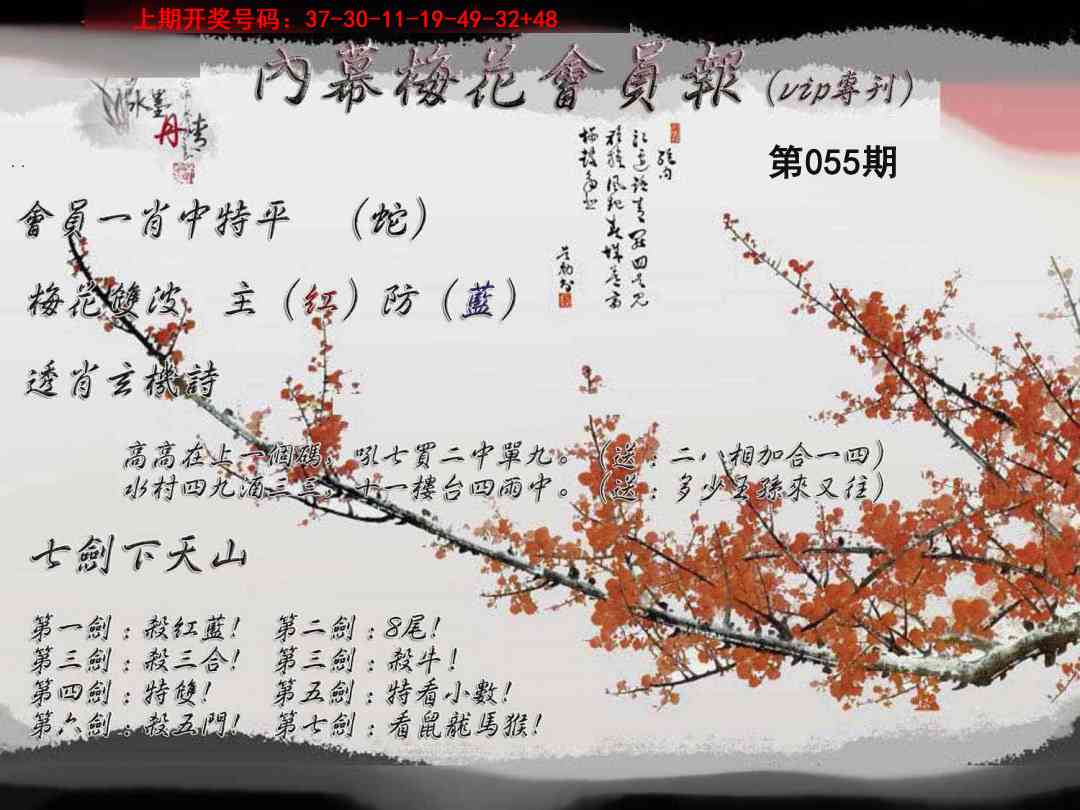 上期开奖号码：37-30-11-19-49-32+48
內幕梅花會員報（vip專刊）
水墨
丹青
第055期
會員一肖中特平 （蛇）
梅花雙波 主（紅）防（藍）
透肖玄機詩
高高在上一個碼，吼七買二中單九。（送：二八相加合一四）
水村四九酒三三，十一樓台四雨中。（送：多少王孫來又往）
七劍下天山
第一劍：殺紅藍! 第二劍：8尾!
第三劍：殺三合! 第三劍：殺牛!
第四劍：特雙! 第五劍：特看小數!
第六劍：殺五門! 第七劍：看鼠龍馬猴!